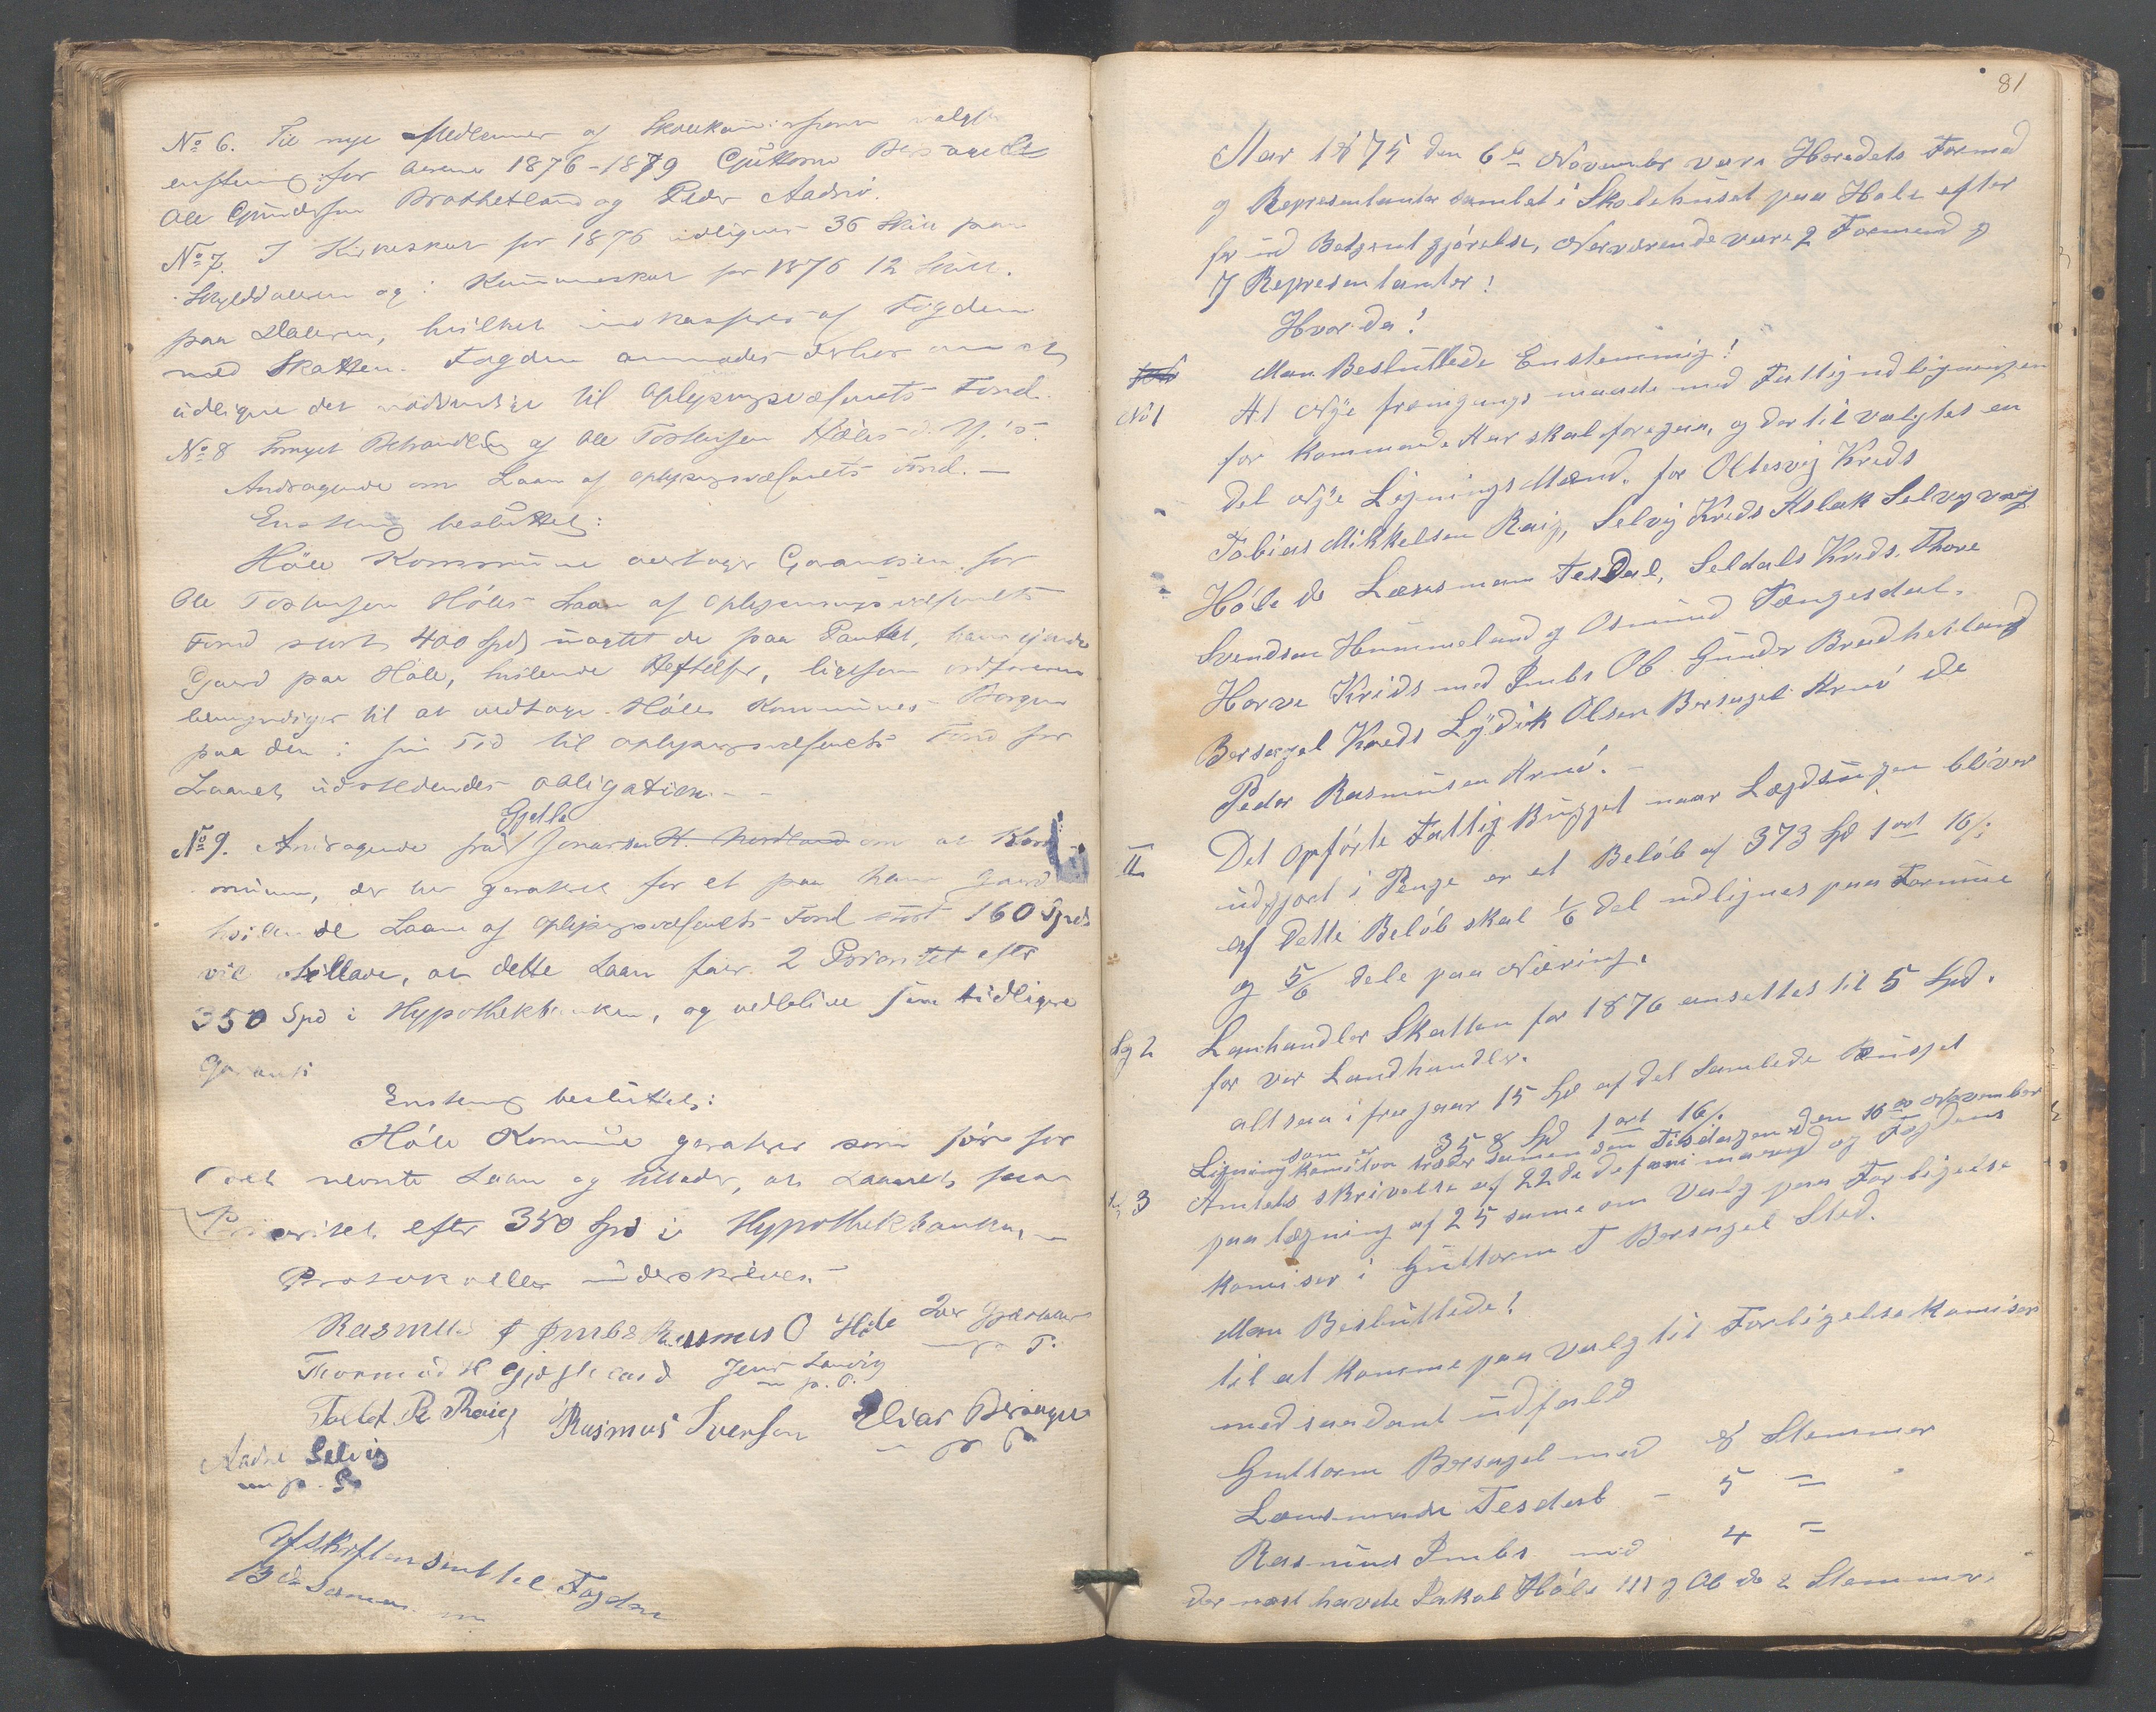 No 6. Til nye Medlemmer af Skolekommissionen valgtes
enstemmig for Aarene 1876-1879 Guttorm Bersagel
Ole Gundersen Brathetland og Peder Aadnö.
No 7. I Kirkeskat for 1876 udlignes 36 Skill paa
Skylddaleren og i Kommuneskat for 1876 12 Skill.
paa Daleren, hvilket indkasseres af Fogden
med Skatten. Fogden anmodes derhos om at
udligne det nødvendige til Oplysningsvæsenets Fond.
No 8 Fornyet Behandling af Ole Tostensen Höles
Andragende om Laan af Oplysningsvæsenets Fond. —
Enstemmig besluttet:
Höle Kommune overtager Garantien for
Ole Tostensen Höles Laan af Oplysningsvæsenets
Fond stort 400 Spd uagtet de paa Pantet, hans eiende
Gaard paa Höle, hvilende Heftelser, ligesom Ordföreren
bemyndiges til at vedtage Höle Kommunes Borgen
paa den i sin Tid til Oplysningsvæsenets Fond for
Laanet udstedendes Obligation. —
Gjetle
No 9. Andragende fra Jonassen H. Nordland om at Kom-
munen, der har garanteret for et paa hans Gaard
hvilende Laan af Oplysningsvæsenets Fond stort 160 Spd
vil tillade, at dette Laan faar 2 Prioritet efter
350 Spd i Hypothekbanken, og vedblive sin tidligere
Garanti
Enstemmig besluttet:
Höle Kommune garanterer som för for
det nevnte Laan og tillader, at Laanet faar
Prioritet efter 350 Spd i Hypothekbanken,
Protokollen underskrives.
Rasmus Imbs Rasmus O Höle
Thormod H Gjesteland Jens Lauvig
m. p. P.
Tollef P Raig Rasmus Svensen Elias Bersagel
m p P
Aadne Selvig
m p. P
Afskriften sendt til Fogden
13 de samme m
81
Aar 1875 den 6te November vare Heredets Formend
og Representanter samlet i Skolehuset paa Hole efter
for ud Bekjentgjörelse, Nerværende vare 2 Formend og
7 Representanter!
Hvor da!
Man Besluttede Enstemmig!
No 1 At Nye fremgangs maade med Fattigudligningen
for kommende Aar skal foregaa, og der til valgtes en
Del Nye Ligningsmænd. for Oltesvig Kreds
Tobias Mikkelsen Raig, Selvig Kreds Aslak Selvig
Höle do Lænsmann Tesdal, Seldals Kreds Thore
Svendsen Hummeland og Osmund Tengesdal.
Horve Kreds med Imbs Ob. Gunder Bradhetland
Bersagel Kreds Lydik Olsen Bersagel Arnö do
Peder Rasmusen Arnö. —
II Det opförte Fattig Budget naar Lægdsingen bliver
udgjort i Penge er et Belöb af 373 Spd 1 ort 16 s.
af dette Belöb skal 1/6 del udlignes paa Formue
og 5/6 dele paa Næring.
Sag 2 Lanhandler Skatten for 1876 ansettes til 5 Spd.
for ver Landhandler.
altsaa i fra gaar 15 Spd af det Samlede Budget
som er 358 Spd 1 ort 16 s.
Ligningskomision træder samen den Tirsdagen den 16de November
Sag 3 Amtets skrivelse af 22de og Fogdens
paategning af 25 same om Valg paa Forligelse
komiser i Guttorm T Bersagel Sted.
Man Besluttede!
til at komme paa valg til Forligelse komiser
med saadant udfald
Guttorm Bersagel med 8 Stemmer
Lensmand Tesdal — 5 —
Rasmus Imbs med 4 —
der næst havde Jakob Höle III og Ob do 2 Stemmer.